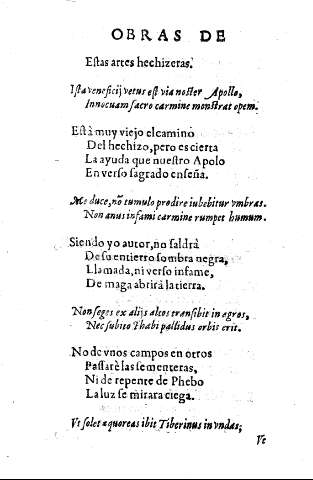 OBRAS DE
Estas artes hechizeras.
Ista veneficij vetus est via noster Apollo,
Innocuam sacro carmine monstrat opem.
Està muy viejo el camino
Del hechizo, pero es cierta
La ayuda que nuestro Apolo
En verso sagrado enseña.
Me duce, nõ tumulo prodire iubebitur vmbras.
Non anus infami carmine rumpet humum.
Siendo yo autor, no saldrà
De su entierro sombra negra,
Llamada, ni verso infame,
De maga abrirà la tierra.
Non seges ex alijs altos transibit in agros,
Nec subito Phæbi pallidus orbis erit.
No de vnos campos en otros
Passarè las sementeras,
Ni de repente de Phebo
La luz se mirara ciega.
Vt solet æquoreas ibit Tiberinus in vndas;
Vt